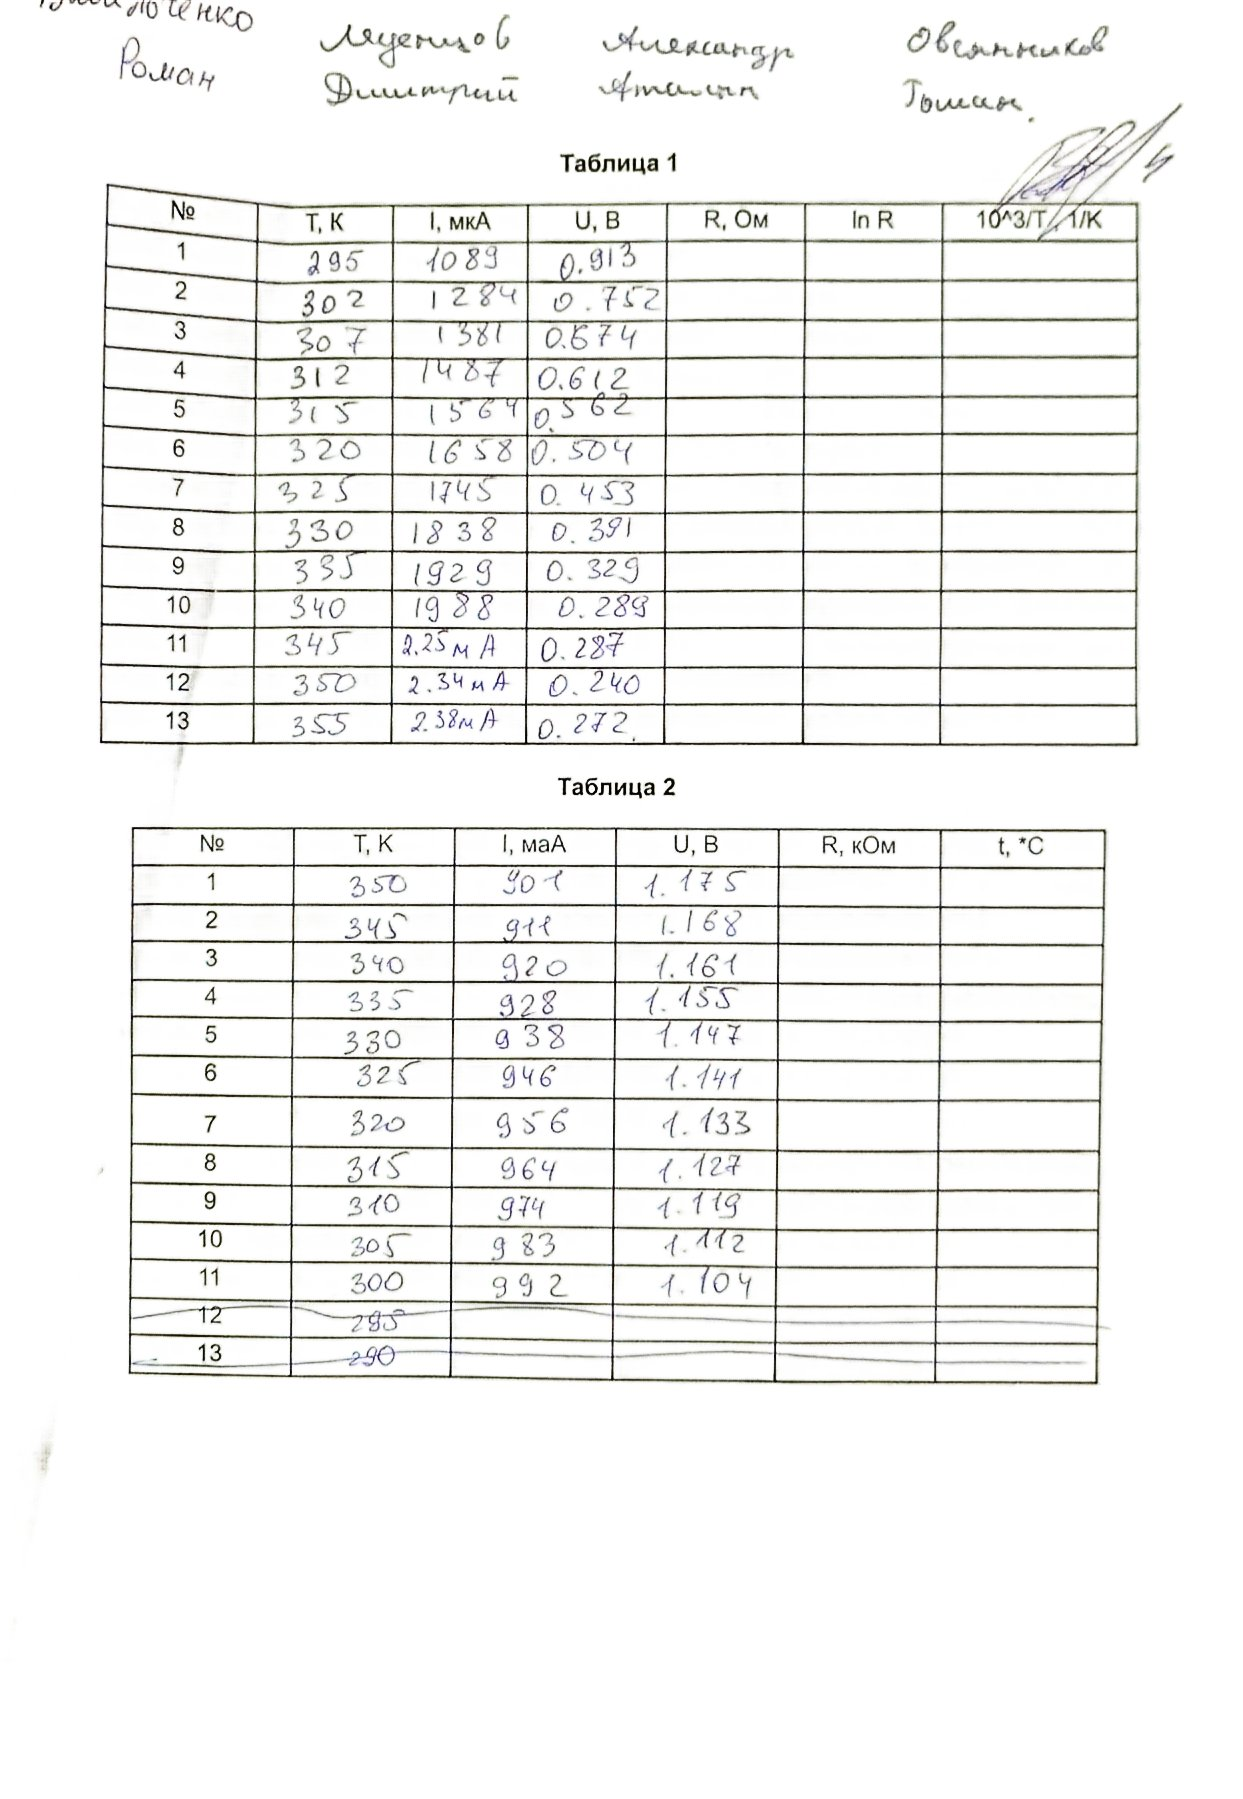 Роман
Леденцов Александр Овсянников
Дмитрий Роман
Таблица 1
№ T, К I, мкА U, В R, Ом ln R 10^3/T, 1/К
1 295 1089 0.913
2 302 1284 0.752
3 307 1381 0.674
4 312 1487 0.612
5 315 1564 0.562
6 320 1658 0.504
7 325 1745 0.453
8 330 1838 0.391
9 335 1929 0.329
10 340 1988 0.289
11 345 2.25мА 0.287
12 350 2.34мА 0.240
13 355 2.38мА 0.272.
Таблица 2
№ T, К I, маА U, В R, кОм t, *C
1 350 901 1.175
2 345 911 1.168
3 340 920 1.161
4 335 928 1.155
5 330 938 1.147
6 325 946 1.141
7 320 956 1.133
8 315 964 1.127
9 310 974 1.119
10 305 983 1.112
11 300 992 1.104
12 295
13 290